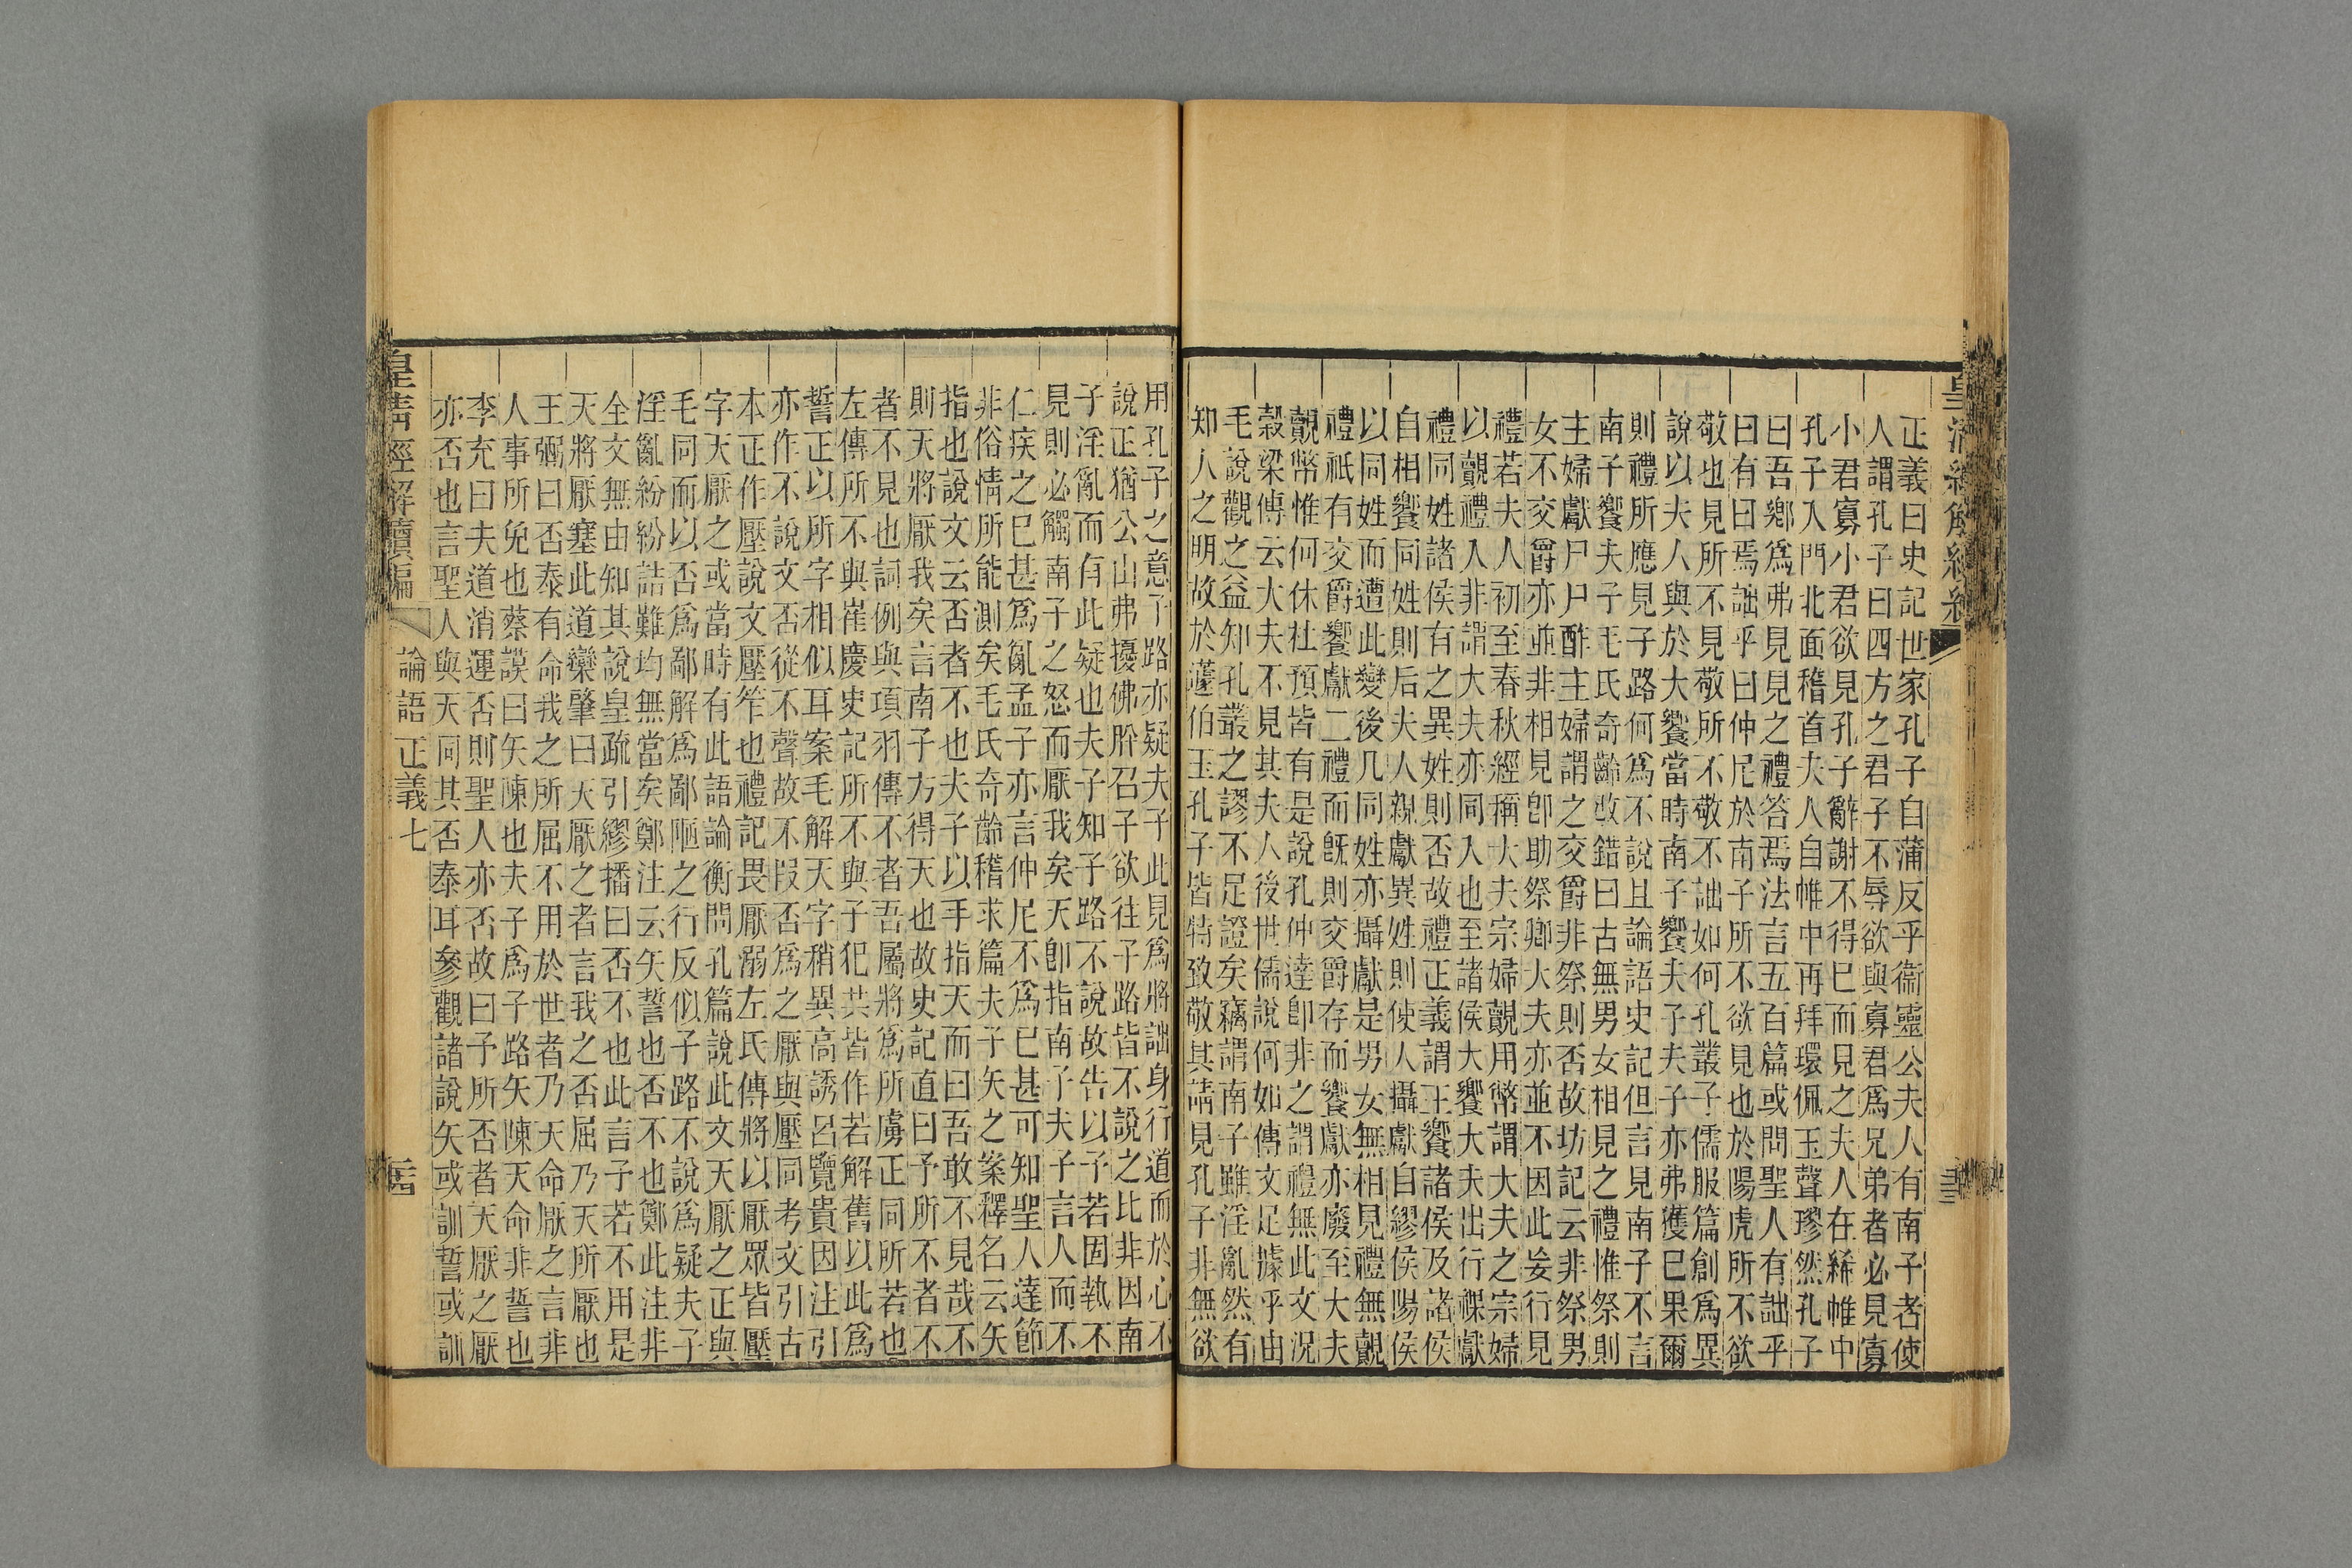 皇清經解續編
正義曰史記世家孔子自蒲反乎衞靈公夫人有南子者使
人謂孔子曰四方之君子不辱欲與寡君爲兄弟者必見寡
小君寡小君欲見孔子辭謝不得已而見之夫人在絺帷中
孔子入門北面稽首夫人自帷中再拜環佩玉聲璆然孔子
曰吾鄉爲弗見見之禮答焉法言五百篇或問聖人有詘乎
曰有曰焉詘乎曰仲尼於南子所不欲見也於陽虎所不欲
敬也見所不見敬所不敬不詘如何孔叢子儒服篇創爲異
說以夫人與於大饗當時南子饗夫子夫子亦弗獲已果爾
則禮所應見子路何爲不說且論語史記但言見南子不言
南子饗夫子毛氏奇齡改錯曰古無男女相見之禮惟祭則
主婦獻尸尸酢主婦謂之交爵非祭則否故坊記云非祭男
女不交爵亦並非相見卽助祭卿大夫亦並不因此妄行見
禮若夫人初至春秋經稱大夫宗婦覿用幣謂大夫之宗婦
以覿禮入非謂大夫亦同入也至諸侯大饗大夫出行祼獻
禮同姓諸侯有之異姓則否故禮正義謂王饗諸侯及諸侯
自相饗同姓則后夫人親獻異姓則使人攝獻自繆侯陽侯
以同姓而遭此變後凡同姓亦攝獻是男女無相見禮無覿
禮祇有交爵饗獻二禮而旣則交爵存而饗獻亦廢至大夫
覿幣惟何休杜預皆有是說孔仲達卽非之謂禮無此文況
穀梁傳云大夫不見其夫人後世儒說何如傳文足據乎由
毛說觀之益知孔叢之謬不足證矣竊謂南子雖淫亂然有
知人之明故於蘧伯玉孔子皆特致敬其請見孔子非無欲
用孔子之意子路亦疑夫子此見爲將詘身行道而於心不
說正猶公山弗擾佛肸召子欲往子路皆不說之比非因南
子淫亂而有此疑也夫子知子路不說故告以子若固執不
見則必觸南子之怒而厭我矣天卽指南子夫子言人而不
仁疾之已甚爲亂孟子亦言仲尼不爲已甚可知聖人達節
非俗情所能測矣毛氏奇齡稽求篇夫子矢之案釋名云矢
指也說文云否者不也夫子以手指天而曰吾敢不見哉不
則天將厭我矣言南子方得天也故史記直曰予所不者不
者不見也詞例與項羽傳不者吾屬將爲所虜正同所若也
左傳所不與崔慶史記所不與子犯共皆作若解舊以此爲
誓正以所字相似耳案毛解天字稍異高誘呂覽貴因注引
亦作不說文否從不聲故不叚否爲之厭與壓同考文引古
本正作壓說文壓笮也禮記畏厭溺左氏傳將以厭眾皆壓
字天厭之或當時有此語論衡問孔篇說此文天厭之正與
毛同而以否爲鄙解爲鄙陋之行反似子路不說爲疑夫子
淫亂紛紛詰難均無當矣鄭注云矢誓也否不也鄭此注非
全文無由知其說皇疏引繆播曰否不也此言子若不用是
天將厭塞此道欒肇曰天厭之者言我之否屈乃天所厭也
王弼曰否泰有命我之所屈不用於世者乃天命厭之言非
人事所免也蔡謨曰矢陳也夫子爲子路矢陳天命非誓也
李充曰夫道消運否則聖人亦否故曰予所否者天厭之厭
亦否也言聖人與天同其否泰耳參觀諸說矢或訓誓或訓
皇清經解續編
論語正義七